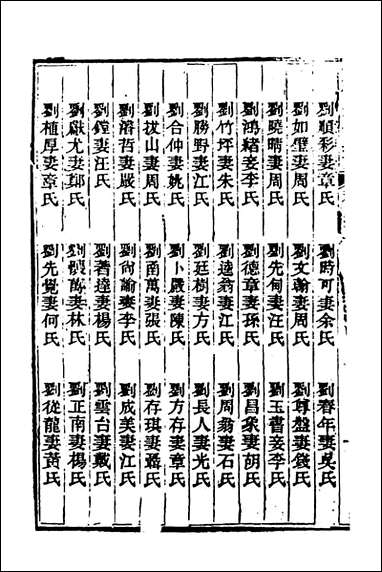 劉順彩妻章氏 劉時可妻余氏 劉春年妻吳氏
劉如璧妻周氏 劉文翰妻周氏 劉尊盤妻錢氏
劉曉晴妻周氏 劉先甸妻汪氏 劉玉書妾李氏
劉鴻緒妾李氏 劉德章妻孫氏 劉昌泉妻胡氏
劉竹坪妻朱氏 劉遠翁妻江氏 劉周翁妻石氏
劉勝野妻江氏 劉廷樹妻方氏 劉長人妻光氏
劉合仲妻姚氏 劉卜嚴妻陳氏 劉方存妻章氏
劉拔山妻周氏 劉南萬妻張氏 劉存琪妻聶氏
劉濬哲妻嚴氏 劉尙諭妻李氏 劉成美妻江氏
劉鏜妻汪氏 劉著達妻楊氏 劉雲台妻戴氏
劉獻尤妻鄒氏 劉 萬妻林氏 劉正南妻楊氏
劉植厚妻章氏 劉先覺妻何氏 劉從龍妻黃氏